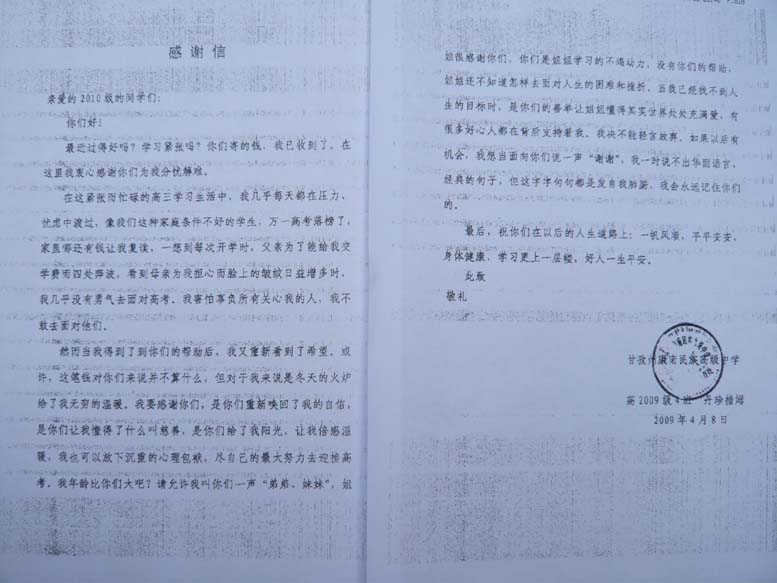 感谢信
亲爱的2010级的同学们：
你们好！
最近过得好吗？学习紧张吗？你们寄的钱，我已收到了，在
这里我衷心感谢你们为我分忧解难。
在这紧张而忙碌的高三学习生活中，我几乎每天都在压力、
忧虑中渡过，像我们这种家庭条件不好的学生，万一高考落榜了，
家里哪还有钱让我复读，一想到每次开学时，父亲为了能给我交
学费而四处奔波，看到母亲为我担心而脸上的皱纹日益增多时，
我几乎没有勇气去面对高考。我害怕辜负所有关心我的人，我不
敢去面对他们。
然而当我得到了到你们的帮助后，我又重新看到了希望。或
许，这笔钱对你们来说并不算什么，但对于我来说是冬天的火炉
给了我无穷的温暖。我要感谢你们，是你们重新唤回了我的自信，
是你们让我懂得了什么叫慈善，是你们给了我阳光，让我倍感温
暖，我也可以放下沉重的心理包袱，尽自己的最大努力去迎接高
考。我年龄比你们大吧？请允许我叫你们一声“弟弟、妹妹”，姐
姐很感谢你们，你们是姐姐学习的不竭动力，没有你们的帮助，
姐姐还不知道怎样去面对人生的困难和挫折。当我已经找不到人
生的目标时，是你们的善举让姐姐懂得其实世界处处充满爱，有
很多好心人都在背后支持着我。我决不能轻言放弃，如果以后有
机会，我想当面向你们说一声“谢谢”，我一时说不出华丽语言、
经典的句子，但这字字句句都是发自我肺腑，我会永远记住你们
的。
最后，祝你们在以后的人生道路上：一帆风顺，平平安安，
身体健康，学习更上一层楼，好人一生平安。
此致
敬礼
甘孜州康定民族高级中学
高2009级4班 丹珍措姆
2009年4月8日